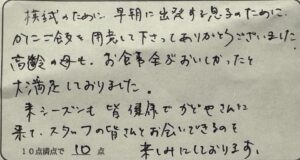 模試のために早朝に出発する息子のために、
かにご飯を用意して下さってありがとうございました
高齢の母も、お食事全がおいしかったと
大満足しておりました。
来シーズンも皆健康でかどやさんに
来て、スタッフの皆さんとお会いできるのを
10点満点で 10 点
楽しみにしております。